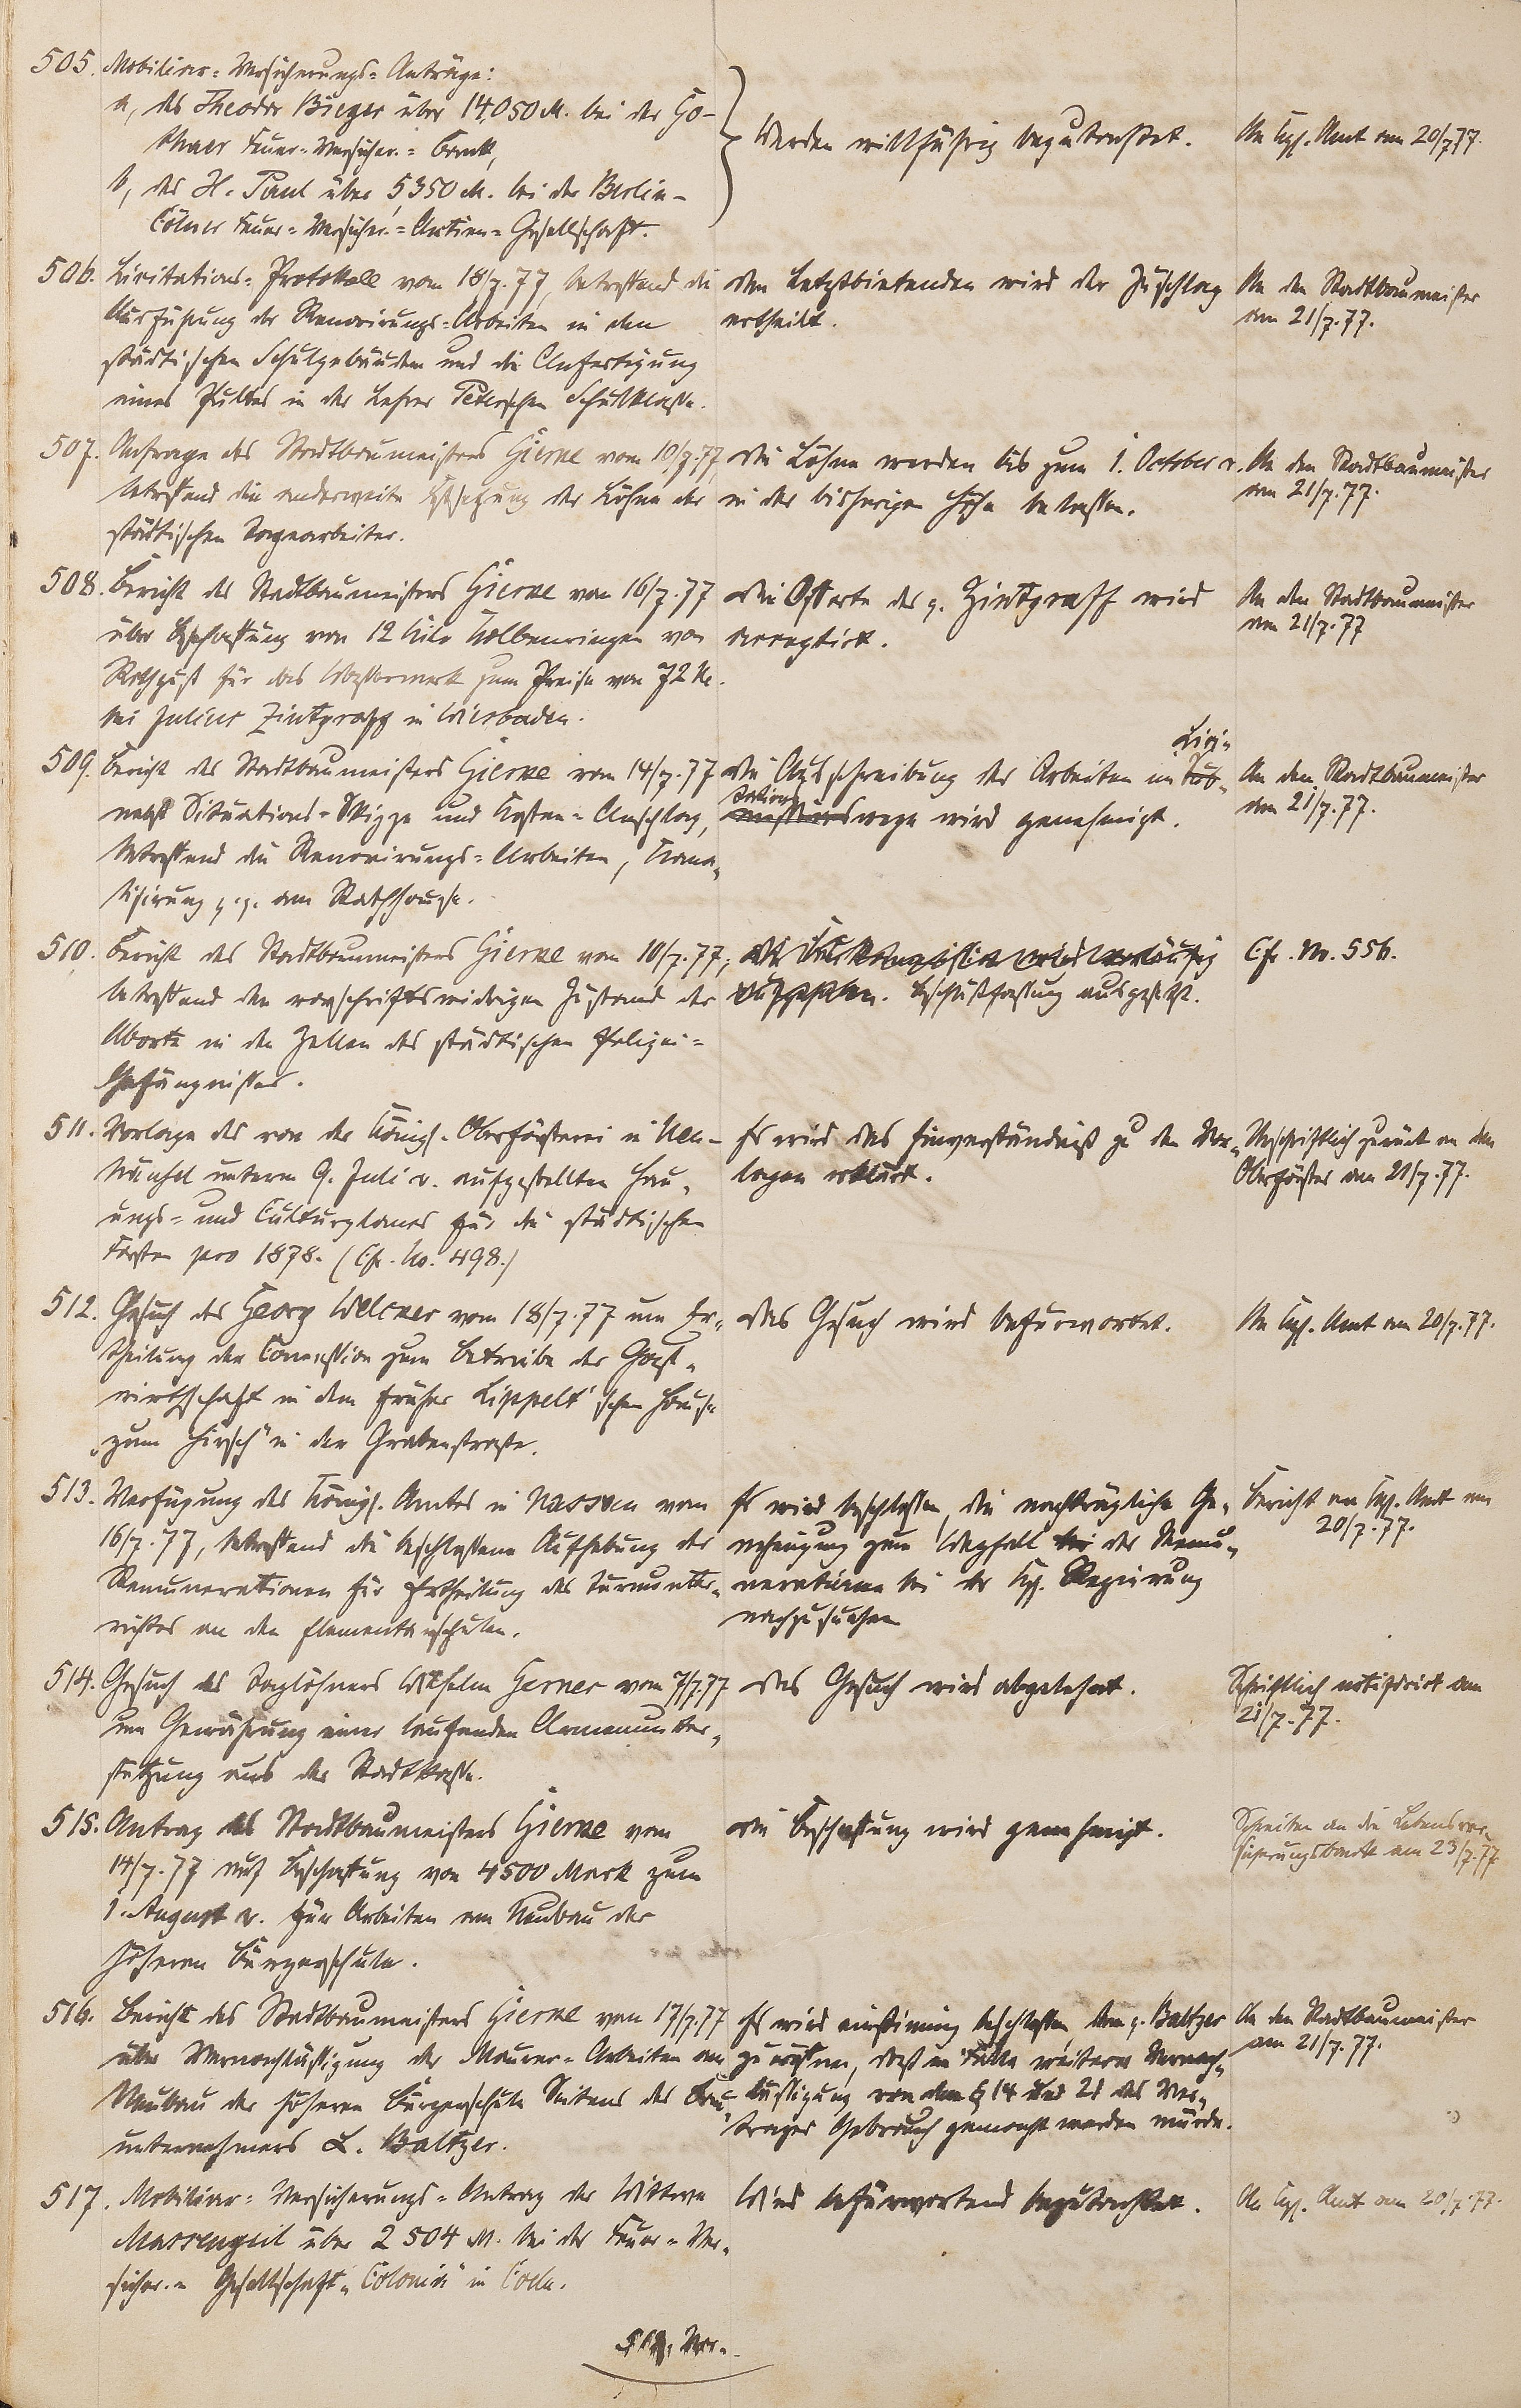 505. Mobiliar-Versicherungs-Anträge:
a, des Theodor Bieger über 14,050 M. bei der Go-
thaer Feuer-Versicher.-Bank,
b, des H. Paul über 5350 M. bei der Berlin-
Cölner Feuer-Versicher.-Actien-Gesellschaft.
Werden willfährig begutachtet.
An Kgl. Amt am 20/7 77.
506. Licitations-Protokoll vom 18/7. 77, betreffend die
Ausführung der Renovirungs-Arbeiten in den
städtischen Schulgebäuden und die Anfertigung
eines Pultes in der Lehrer Peter'schen Schulklasse.
Dem Letztbietenden wird der Zuschlag
ertheilt.
An den Stadtbaumeister
am 21/7. 77.
507. Anfrage des Stadtbaumeisters Gierke vom 10/7. 77,
betreffend die anderweite Festsetzung der Löhne der
städtischen Tagearbeiter.
Die Löhne werden bis zum 1. October c.
in der bisherigen Höhe belassen.
An den Stadtbaumeister
am 21/7. 77.
508. Bericht des Stadtbaumeisters Gierke vom 16/7. 77
über Beschaffung von 12 Kilo Kolbenringen von
Rothguß für das Wasserwerk zum Preise von 72 M.
bei Julius Zintgraff in Wiesbaden.
Die Offerte des p. Zintgraff wird
acceptirt.
An den Stadtbaumeister
am 21/7. 77
509. Bericht des Stadtbaumeisters Gierke vom 14/7. 77
nebst Situations-Skizze und Kosten-Anschlag,
betreffend die Renovirungs-Arbeiten, Kana-
lisirung p. p. am Rathhause.
Lici-
Die Ausschreibung der Arbeiten im Sub-
tations
missionswege wird genehmigt.
An den Stadtbaumeister
am 21/7. 77.
510. Bericht des Stadtbaumeisters Gierke vom 10/7. 77,
betreffend den vorschriftswidrigen Zustand der
Aborte in den Zellen des städtischen Polizei-
Gefängnisses.
Beschlußfassung ausgesetzt.
Cfr. No. 556.
511. Vorlage des von der Königl. Oberförsterei in Neu-
häusel unterm 9. Juli c. aufgestellten Hau-
ungs- und Culturplanes für die städtischen
Forsten pro 1878. (Cfr. No. 498.)
Es wird das Einverständniß zu den Vor-
lagen erklärt.
Urschriftlich zurück an den
Oberförster am 21/7. 77.
512. Gesuch des Georg Welcker vom 18/7. 77 um Er-
theilung der Concession zum Betriebe der Gast-
wirthschaft in dem früher Lippelt'schen Hause
"zum Hirsch" in der Grabenstraße.
Das Gesuch wird befürwortet.
An Kgl. Amt am 20/7. 77.
513. Verfügung des Königl. Amtes in Nassau vom
16/7. 77, betreffend die beschlossene Aufhebung der
Remunerationen für Ertheilung des Turnunter-
richtes an den Elementarschulen.
Es wird beschlossen, die nachträgliche Ge-
nehmigung zum Wegfall bei der Remu-
nerationen bei der Kgl. Regierung
nachzusuchen
Bericht an Kgl. Amt am
20/7. 77.
514. Gesuch des Taglöhners Wilhelm Gerner vom 7/7. 77
um Gewährung einer laufenden Armenunter-
stützung aus der Stadtkasse.
Das Gesuch wird abgelehnt.
Schriftlich notificirt am
21/7. 77.
515. Antrag des Stadtbaumeisters Gierke vom
14/7. 77 auf Beschaffung von 4500 Mark zum
1. August c. für Arbeiten am Neubau der
höheren Bürgerschule.
Die Beschaffung wird genehmigt.
Schreiben an die Lebensver-
sicherungsbank am 23/7. 77
516. Bericht des Stadtbaumeisters Gierke vom 17/7. 77
über Vernachlässigung der Maurer-Arbeiten am
Neubau der höheren Bürgerschule Seitens des Bau-
unternehmers L. Baltzer.
Es wird einstimig beschlossen, dem p. Baltzer
zu eröffnen, daß im Falle weiterer Vernach-
lässigung von dem § 14 und 21 des Ver-
trages Gebrauch gemacht werden würde.
An den Stadtbaumeister
am 21/7. 77.
517. Mobiliar-Versicherungs-Antrag der Wittwe
Massengeil über 2504 M. bei der Feuer-Ver-
sicher.-Gesellschaft "Colonia" in Cöln.
Wird befürwortend begutachtet.
An Kgl. Amt am 20/7. 77.
518. Ver-